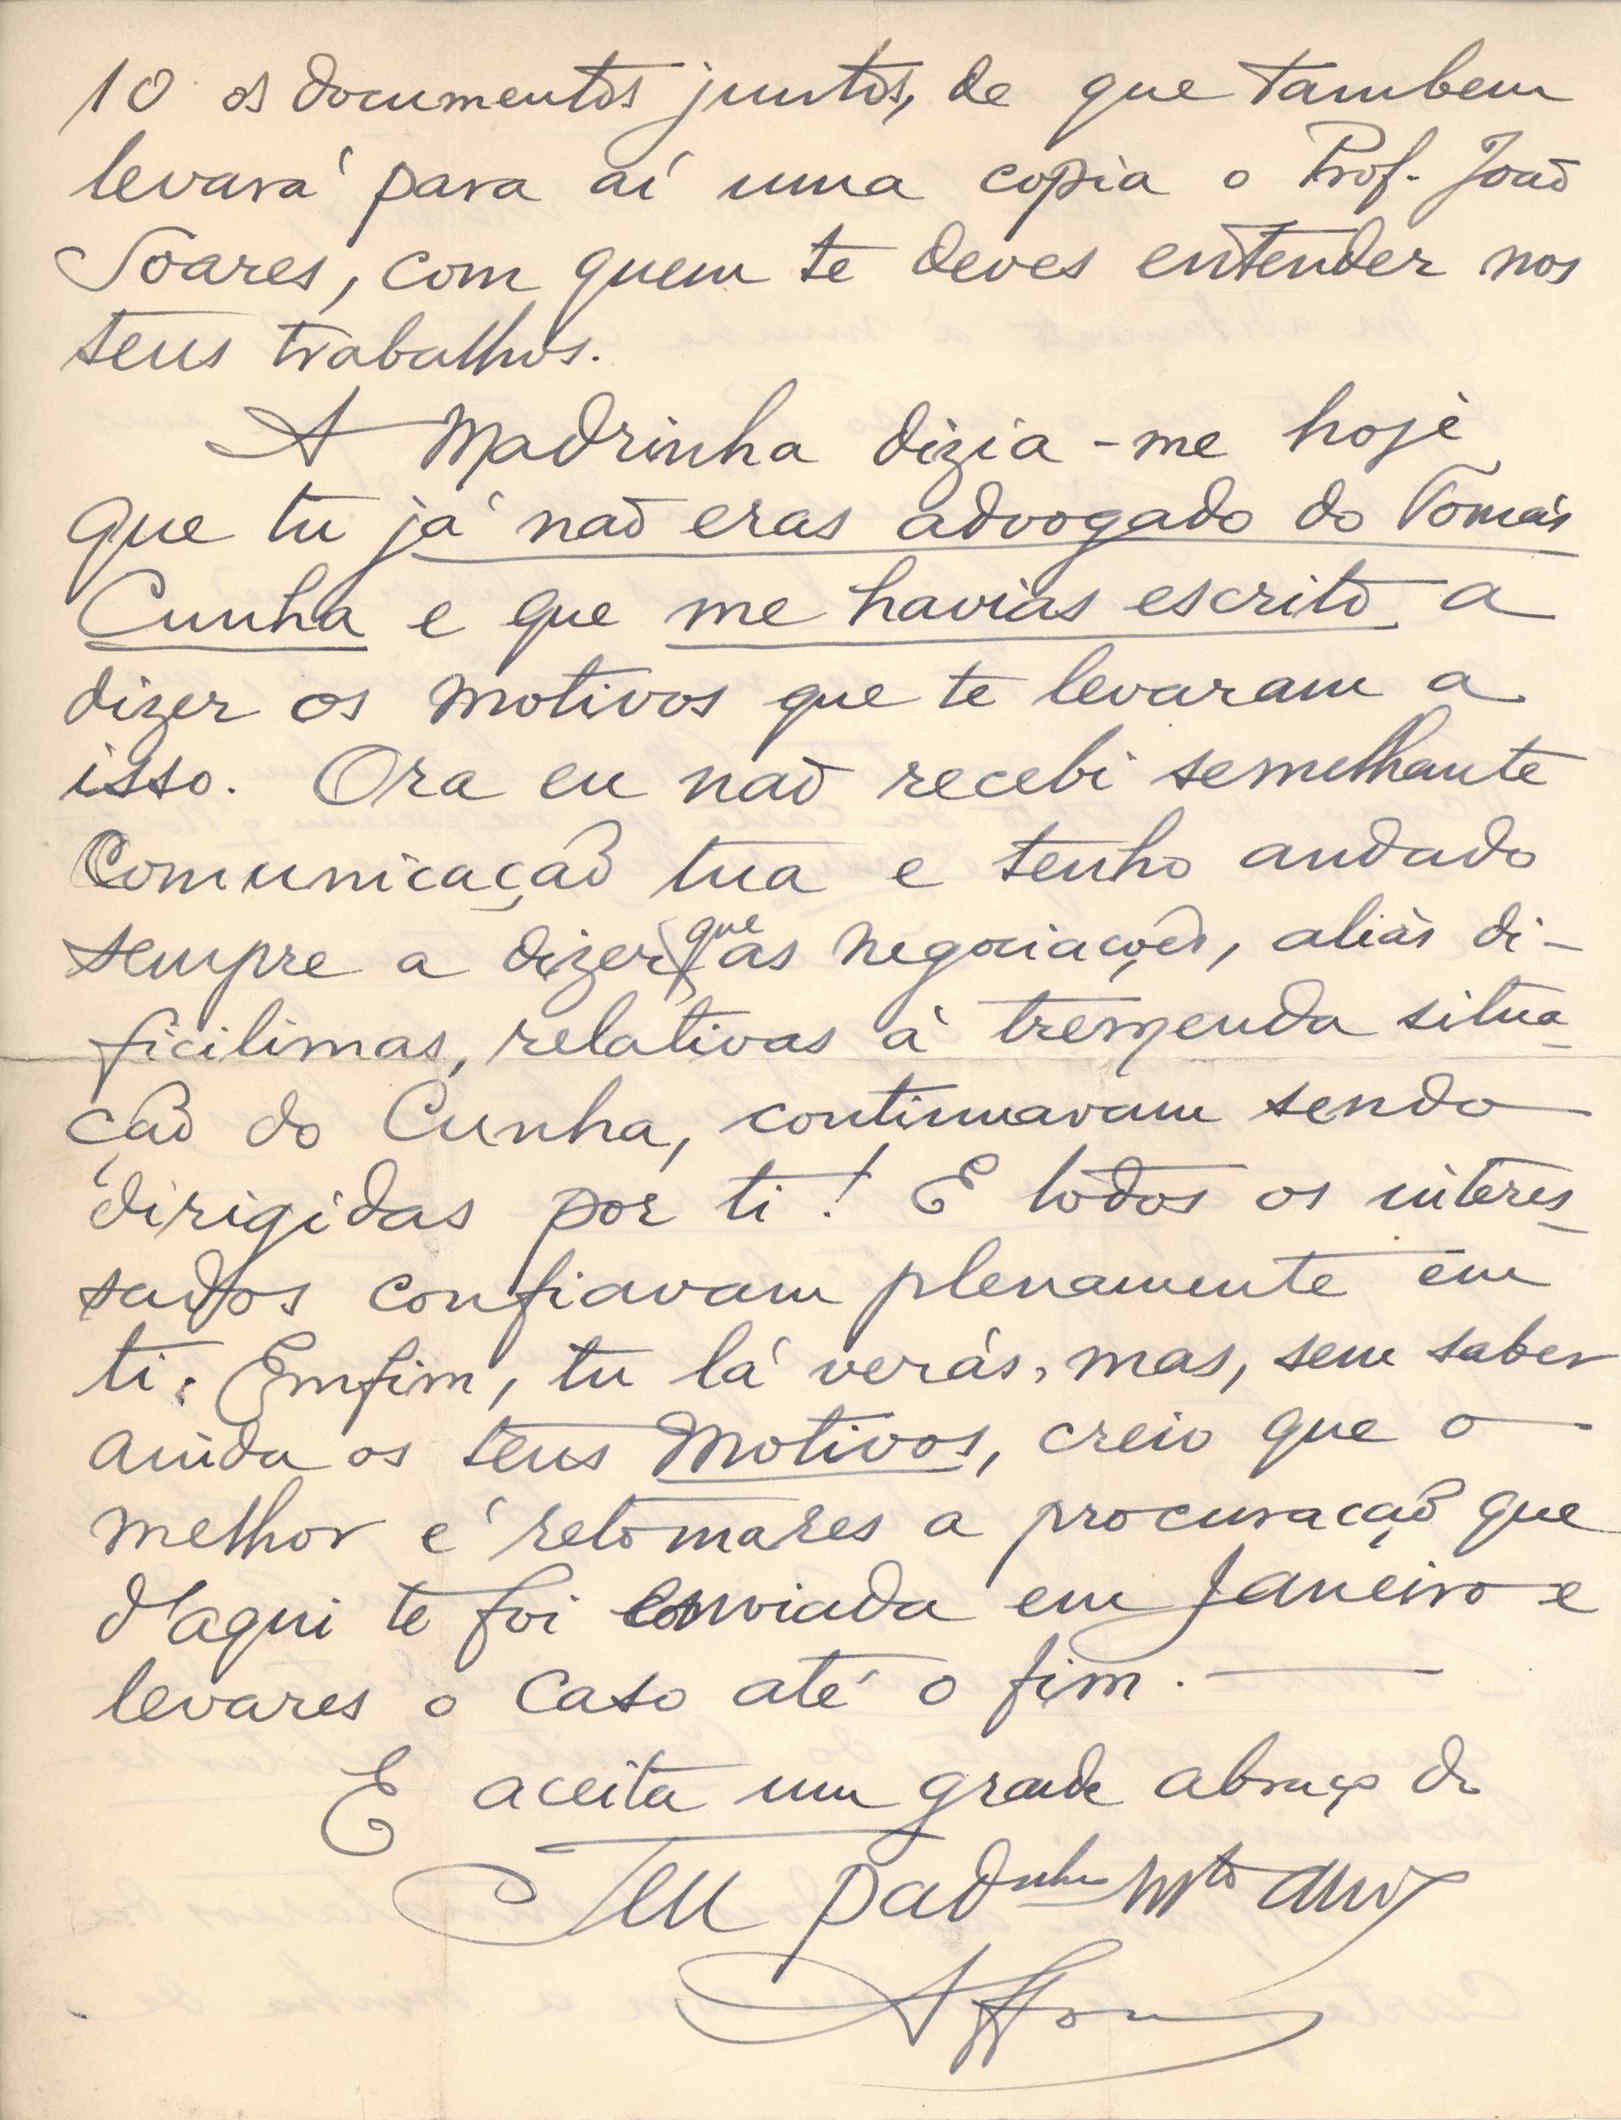 10 os documentos juntos, de que tambem
levará para aí uma copia o Prof. João
Soares, com quem te deves entender nos
teus trabalhos.
A Madrinha dizia-me hoje
que tu já não eras advogado do Tomás
Cunha e que me havias escrito a
dizer os motivos que te levaram a
isso. Ora eu não recebi semelhante
Comunicação tua e tenho andado
sempre a dizer que as negociações, aliás di-
ficilimas, relativas á tremenda situa-
ção do Cunha, continuavam sendo
dirigidas por ti! E todos os interes-
sados confiavam plenamente em
ti. Emfim, tu lá verás, mas, sem saber
ainda os teus motivos, creio que o
melhor é retomares a procuração que
d'aqui te foi enviada em Janeiro e
levares o caso até o fim.
E aceita um grande abraço do
Teu padnho mto amº
Affonso